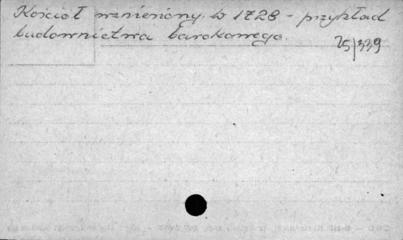 Kościół wzniesiony w 1728 - przykład
budownictwa barokowego.
25/339